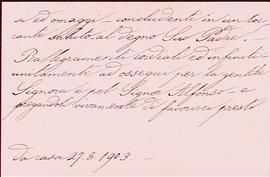 ri ed omaggi - concludenti in un toc
cante saluto al degno Suo Padre! -
Rallegramenti cordiali ed infiniti
unitamente ad ossequi per la gentile
Signora e pel Signor Alfonso - e
pregandoli vivamente di favorirci presto
da casa 27.8.1903.